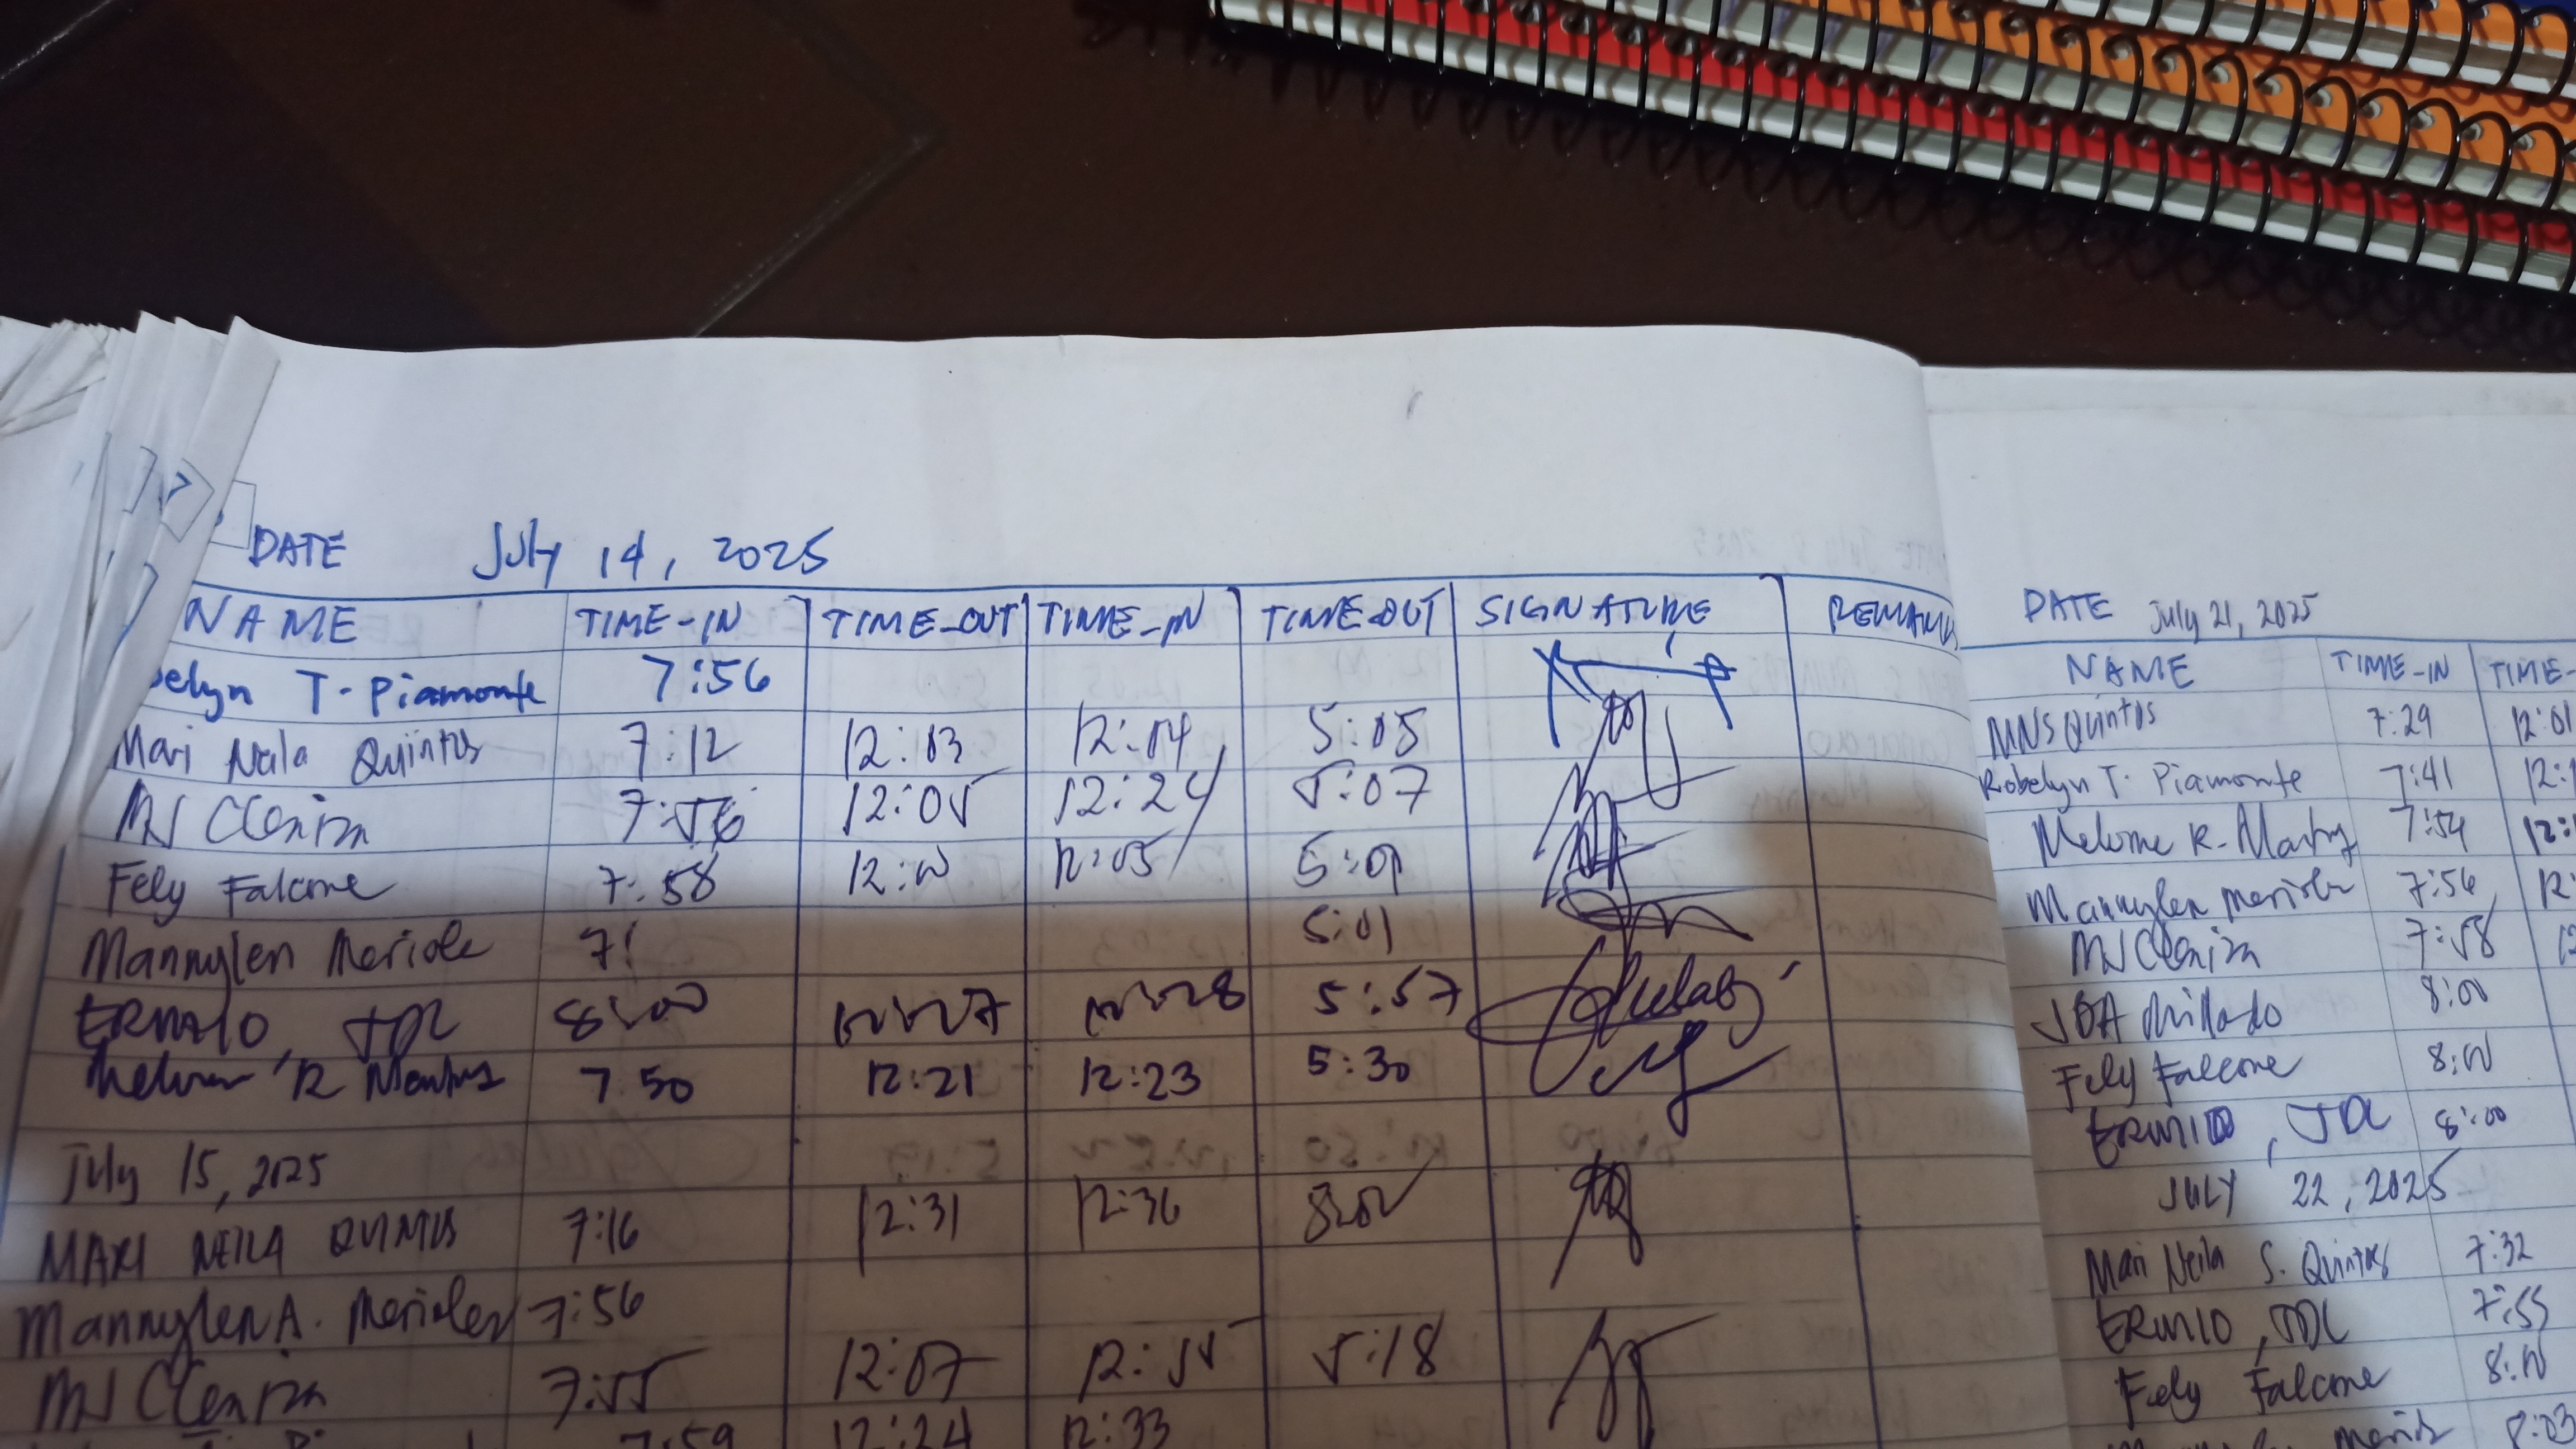 DATE July 14, 2025
NAME TIME-IN TIME-OUT TIME-IN TIME-OUT SIGNATURE REMARK
belyn T. Piamonte 7:56
Mari Neila Quintos 7:12 12:03 12:04 5:05
MN CCeniza 7:56 12:05 12:24 5:07
Fely Falcone 7:58 12:00 12:05 5:01
Mannylen Meriole 7: 5:01
ERMIO, JDL 8:00 12:27 12:28 5:57
Melvine R 7:50 12:21 12:23 5:30
July 15, 2025
MARI NEILA QUINTOS 7:16 12:31 12:36 8:00
Mannylen A. Merioles 7:56
MN CCeniza 7:55 12:07 12:15 5:18
7:59 12:24 12:33
DATE July 21, 2025
NAME TIME-IN TIME-
MNS Quintos 7:29 12:01
Robelyn T. Piamonte 7:41 12:1
R. 7:54 12:
Mannylen Meriole 7:56 12:
MN CCeniza 7:58 12
JOA 8:00
Fely Falcone 8:00
ERMIO, JDL 8:00
JULY 22, 2025
Mari Neila S. Quintos 7:32
ERMIO, JDL 7:55
Fely Falcone 8:00